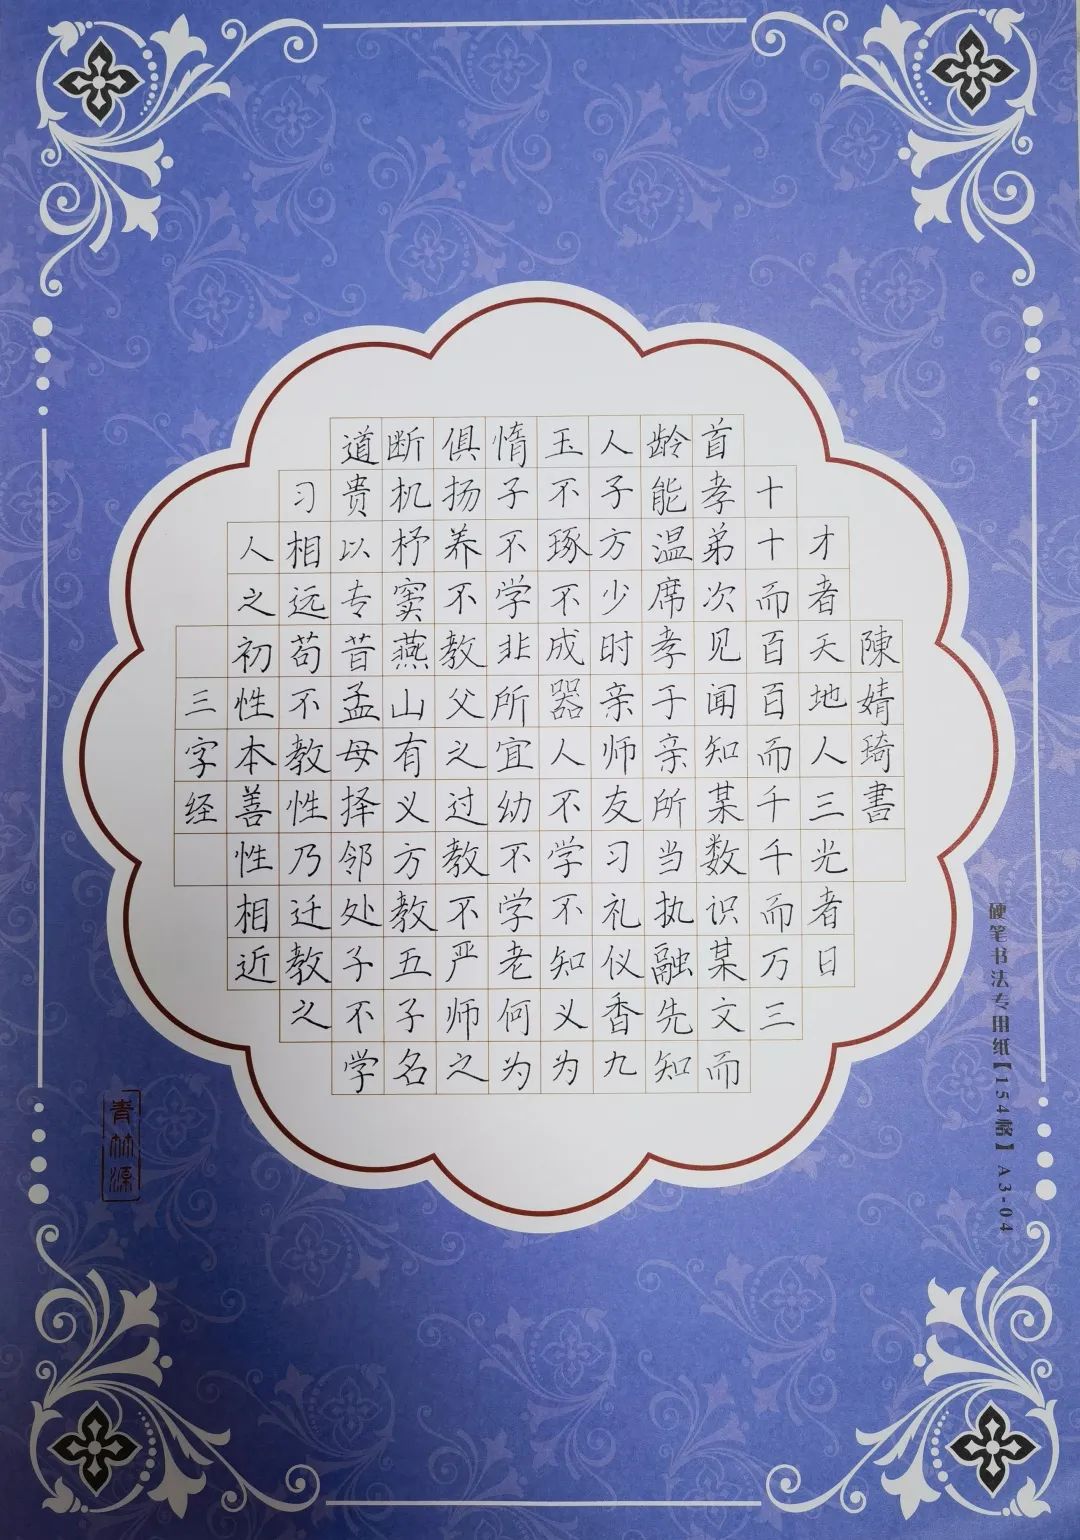 三字经
人之初性本善性相近
习相远苟不教性乃迁教之
道贵以专昔孟母择邻处子不学
断机杼窦燕山有义方教五子名
俱扬养不教父之过教不严师之
惰子不学非所宜幼不学老何为
玉不琢不成器人不学不知义为
人子方少时亲师友习礼仪香九
龄能温席孝于亲所当执融先知
首孝弟次见闻知某数识某文而
十十而百百而千千而万三
才者天地人三光者日
陳婧琦書
硬笔书法专用纸【154款】A3-04
青林源